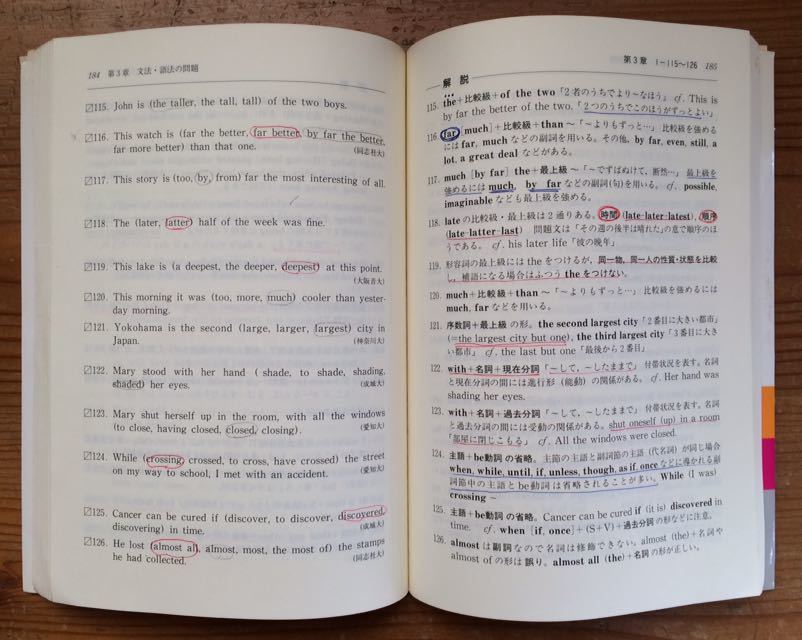 184 第3章 文法・語法の問題
115. John is (the taller, the tall, tall) of the two boys.
116. This watch is (far the better, far better, by far the better,
far more better) than that one. (同志社大)
117. This story is (too, by, from) far the most interesting of all.
118. The (later, latter) half of the week was fine.
119. This lake is (a deepest, the deeper, deepest) at this point.
(大阪音大)
120. This morning it was (too, more, much) cooler than yester-
day morning.
121. Yokohama is the second (large, larger, largest) city in
Japan. (神奈川大)
122. Mary stood with her hand ( shade, to shade, shading,
shaded) her eyes. (成城大)
123. Mary shut herself up in the room, with all the windows
(to close, having closed, closed, closing). (愛知大)
124. While (crossing, crossed, to cross, have crossed) the street
on my way to school, I met with an accident. (愛知大)
125. Cancer can be cured if (discover, to discover, discovered,
discovering) in time. (成城大)
126. He lost (almost all, almost, most, the most of) the stamps
he had collected. (同志社大)
第3章 1-115~126 185
解 説
115. the+比較級+of the two「2者のうちでより~なほう」 cf. This is
by far the better of the two.「2つのうちでこのほうがずっとよい」
116. far[much]+比較級+than ~「~よりもずっと…」 比較級を強める
には far, much などの副詞を用いる。その他, by far, even, still, a
lot, a great deal などがある。
117. much [by far] the+最上級~「~でずばぬけて, 断然…」 最上級を
強めるには much, by far などの副詞(句)を用いる。 cf. possible,
imaginable なども最上級を強める。
118. late の比較級・最上級は2通りある。時間 (late-later-latest), 順序
(late-latter-last) 問題文は「その週の後半は晴れた」の意で順序のほ
うである。 cf. his later life「彼の晩年」
119. 形容詞の最上級には the をつけるが, 同一物, 同一人の性質・状態を比較
し, 補語になる場合はふつう the をつけない。
120. much+比較級+than ~「~よりもずっと…」 比較級を強めるには
much, far などを用いる。
121. 序数詞+最上級 の形。the second largest city「2番目に大きい都市」
(=the largest city but one), the third largest city「3番目に大き
い都市」 cf. the last but one「最後から2番目」
122. with+名詞+現在分詞「~して, ~したままで」 付帯状況を表す。名詞
と現在分詞の間には進行形(能動)の関係がある。 cf. Her hand was
shading her eyes.
123. with+名詞+過去分詞「~して, ~したままで」 付帯状況を表す。名詞
と過去分詞の間には受動の関係がある。shut oneself (up) in a room
「部屋に閉じこもる」 cf. All the windows were closed.
124. 主語+be動詞 の省略。 主節の主語と副詞節の主語(代名詞)が同じ場合
when, while, until, if, unless, though, as if, once などに導かれる副
詞節中の主語とbe動詞は省略されることが多い。While (I was)
crossing ~
125. 主語+be動詞 の省略。Cancer can be cured if (it is) discovered in
time. cf. when [if, once]+(S+V)+過去分詞 の形などに注意。
126. almost は副詞なので名詞は修飾できない。almost (the)+名詞や
almost of の形は誤り。almost all (the)+名詞 の形が正しい。